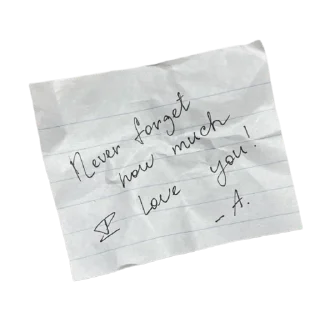 Never forget
how much
I love you!
- A.